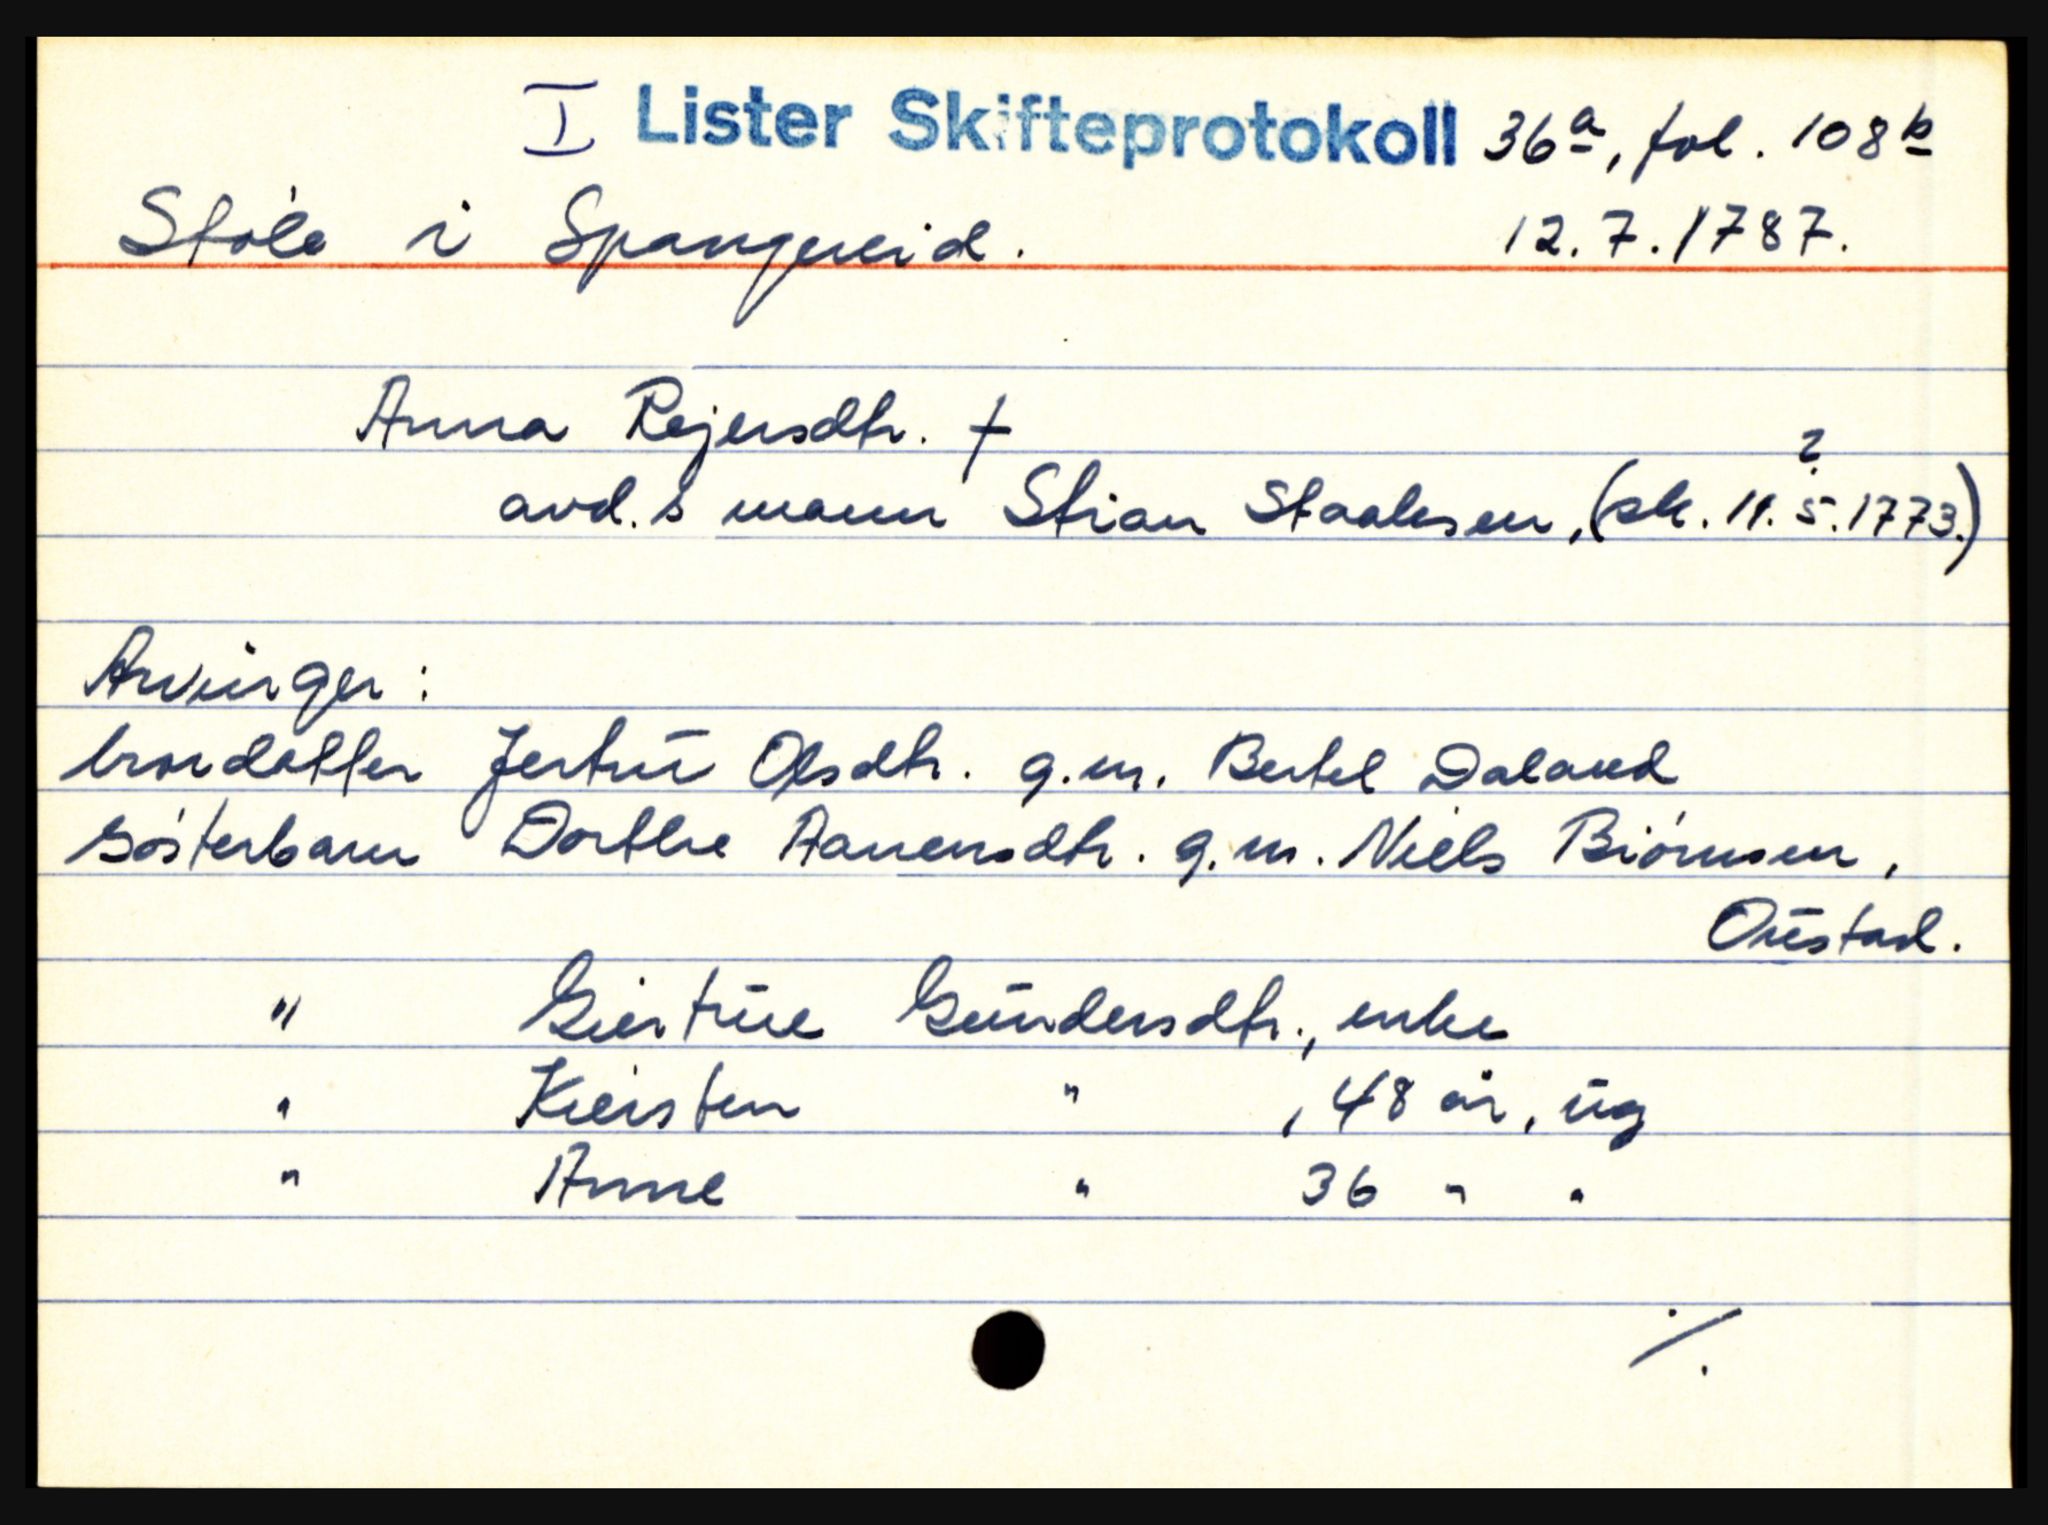 I Lister Skifteprotokoll 36a, fol. 108b
Støle i Spangereid. 12.7.1787.
Anna Rejersdtr. †
?
avd.s mann Stian Staalesen, (sk. 11.5.1773.)
Arvinger:
brordatter Jertrū Olsdtr. g.m. Bertel Daland
Søsterbarn Dorthe Aanensdtr. g.m. Niels Biørnsen,
Oūstad.
" Giertrūe Gūndersdtr., enke
" Kiersten " , 48 år, ūg
" Anne " 36 " "
./.